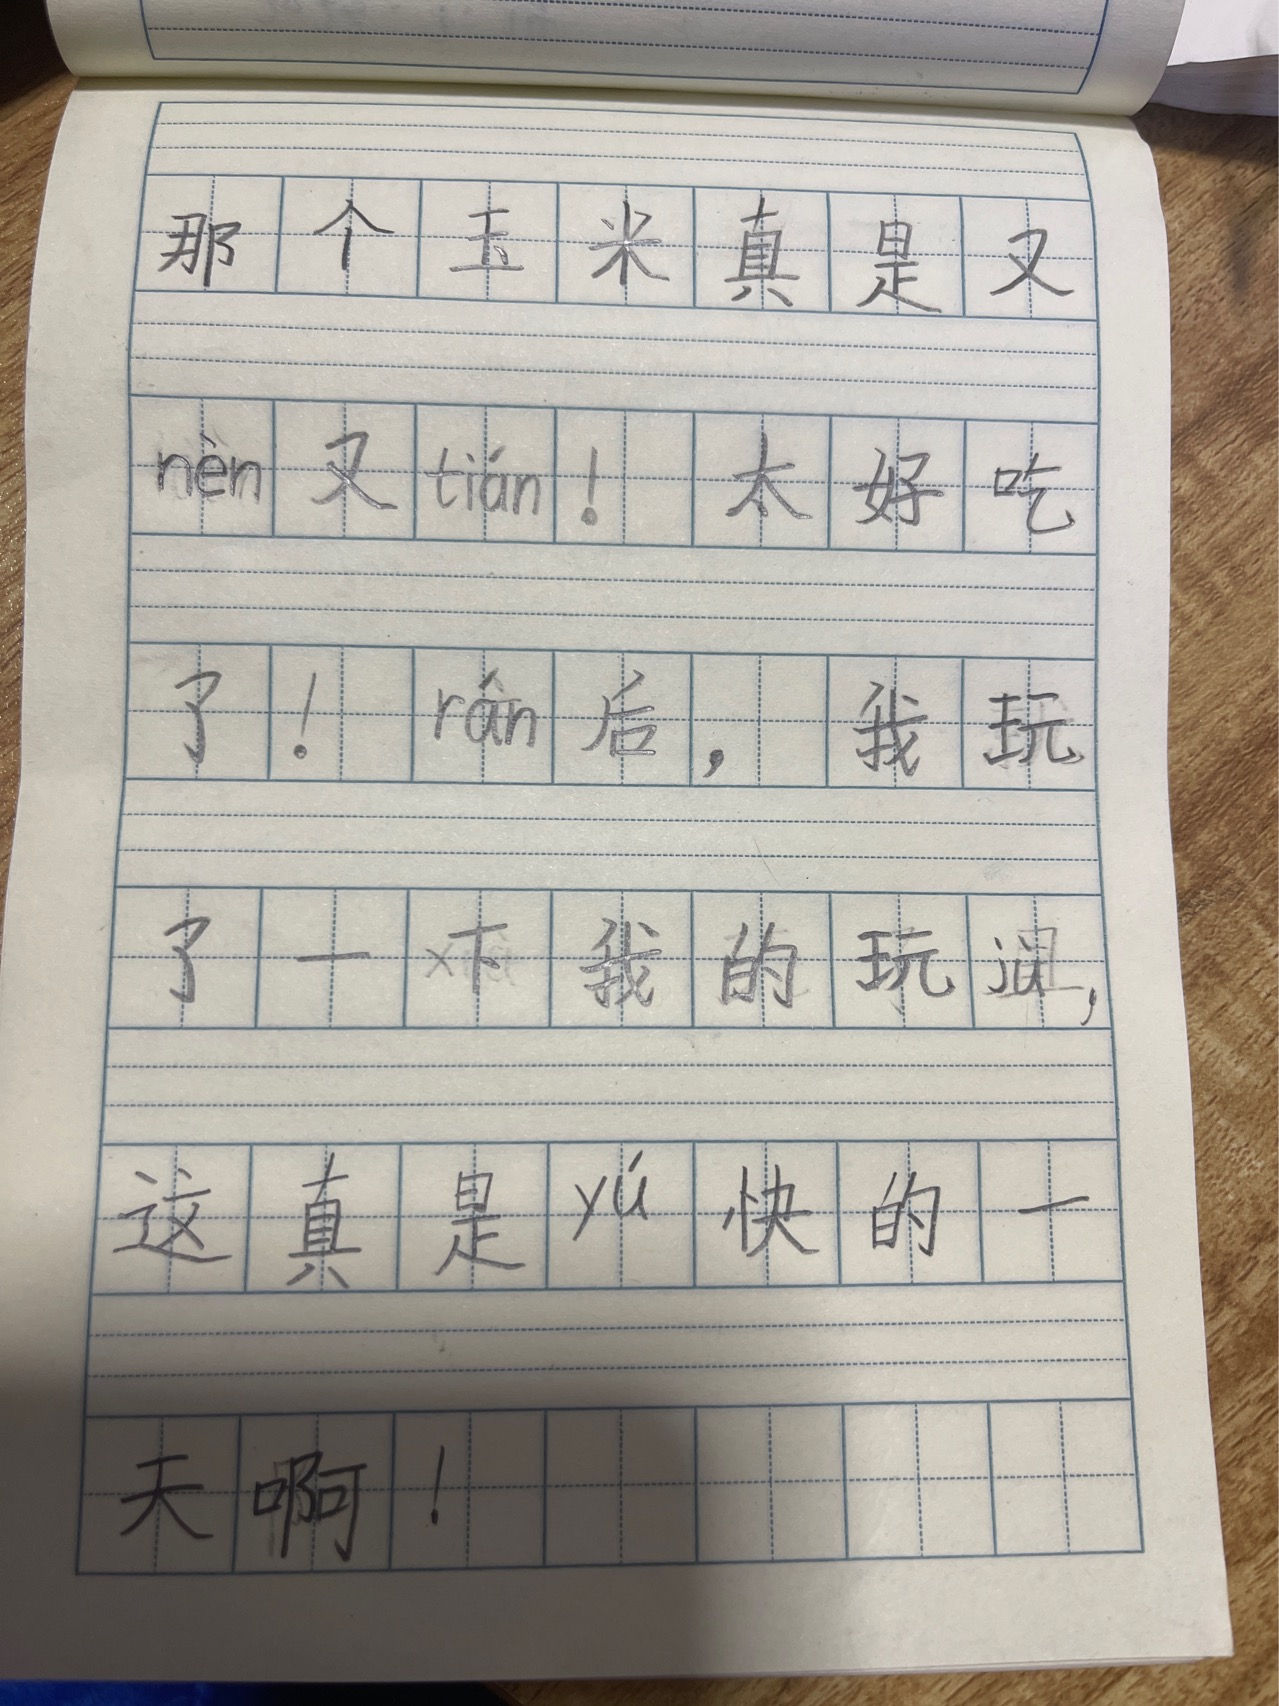 那个玉米真是又
nèn又tián！太好吃
了！rán后，我玩
了一下我的玩jù，
这真是yú快的一
天啊！